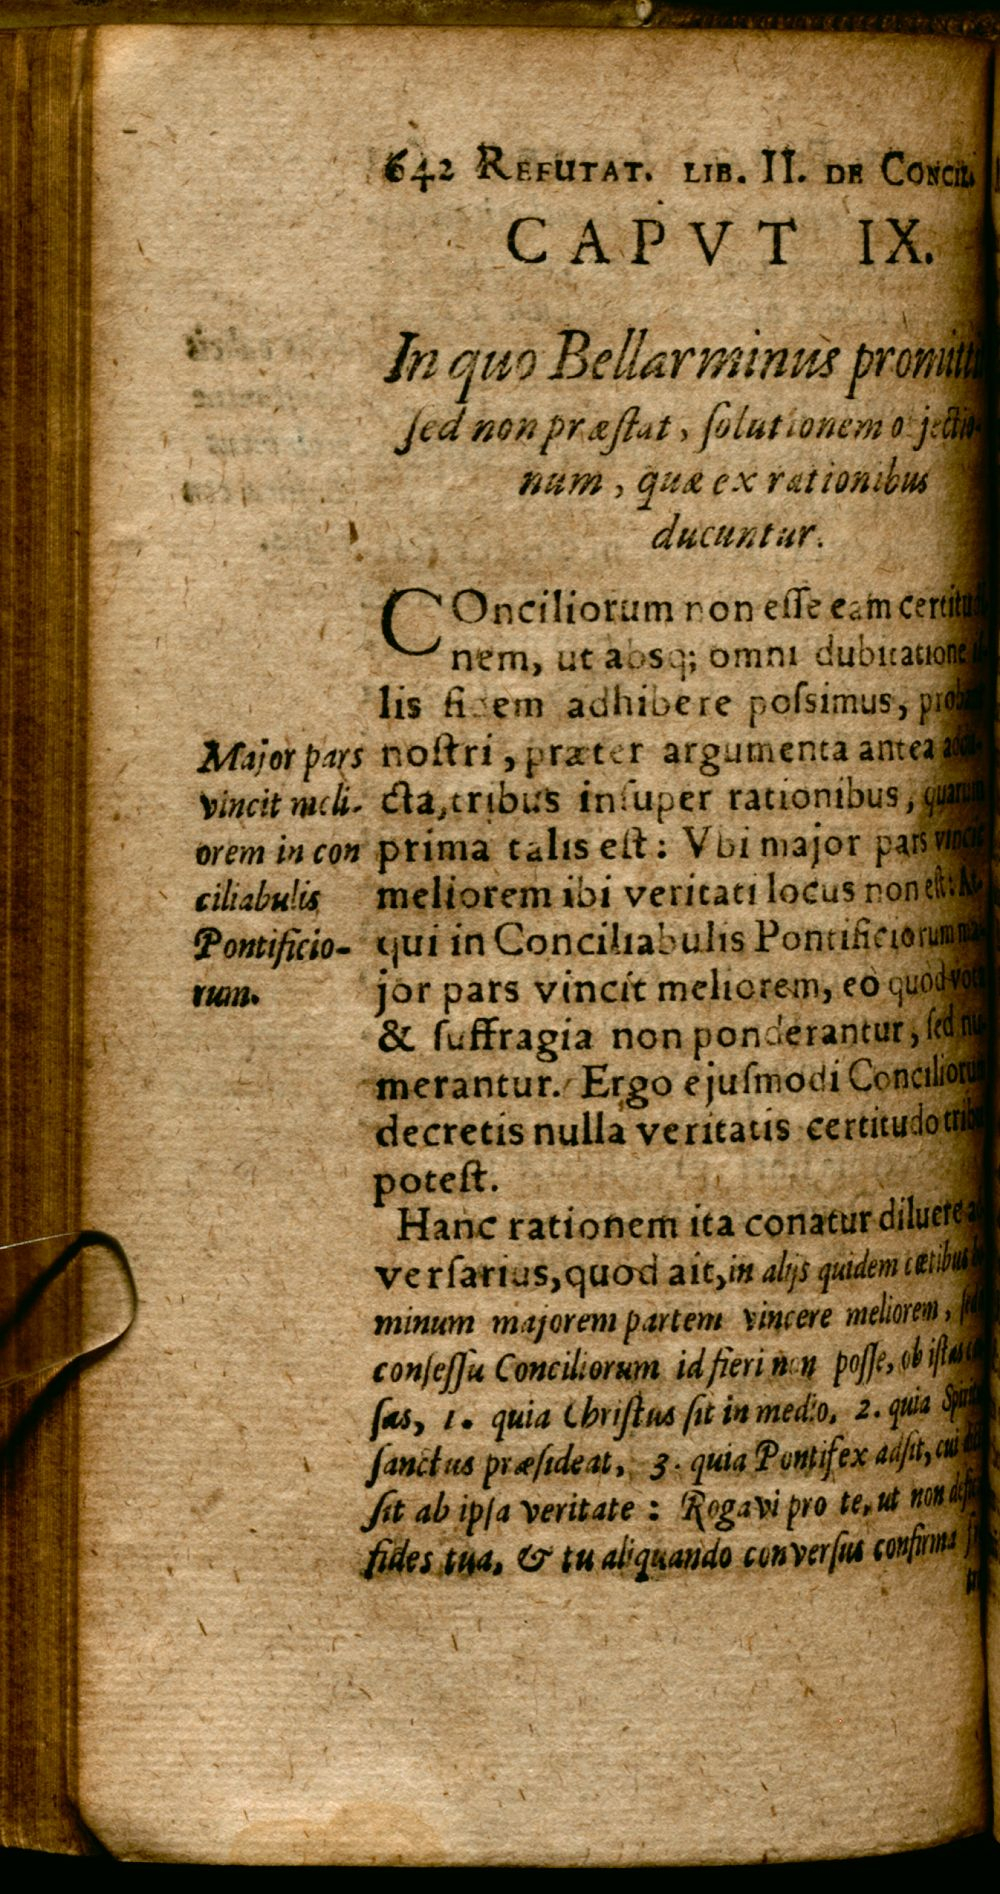 642 REFUTAT. LIB. II. DE CONCIL.
CAPVT IX.
In quo Bellarminus promitti
ſed non præſtat, ſolutionem objectio-
num, quæ ex rationibus
ducuntur.
COnciliorum non eſſe eam certitudi
nem, ut absq; omni dubitatione il-
lis fidem adhibere poſsimus, probant
noſtri, præter argumenta antea addu-
cta, tribus inſuper rationibus, quarum
prima talis eſt: Vbi major pars vincit
meliorem ibi veritati locus non eſt: At-
qui in Conciliabulis Pontificiorum ma-
jor pars vincit meliorem, eò quòd vota
& ſuffragia non ponderantur, ſed nu-
merantur. Ergo ejuſmodi Conciliorum
decretis nulla veritatis certitudo tribui
poteſt.
Hanc rationem ita conatur diluere ad
verſarius, quod ait, in alijs quidem cœtibus ho
minum majorem partem vincere meliorem, ſed
conſeſſu Conciliorum id fieri non poſſe, ob iſtas cau
ſas, 1. quia Chriſtus ſit in medio. 2. quia Spiritus
ſanctus præſideat, 3. quia Pontifex adſit, cui
ſit ab ipſa veritate: Rogavi pro te, ut non
fides tua, & tu aliquando converſus confirma
Major pars
vincit meli-
orem in con
ciliabulis
Pontificio-
rum.